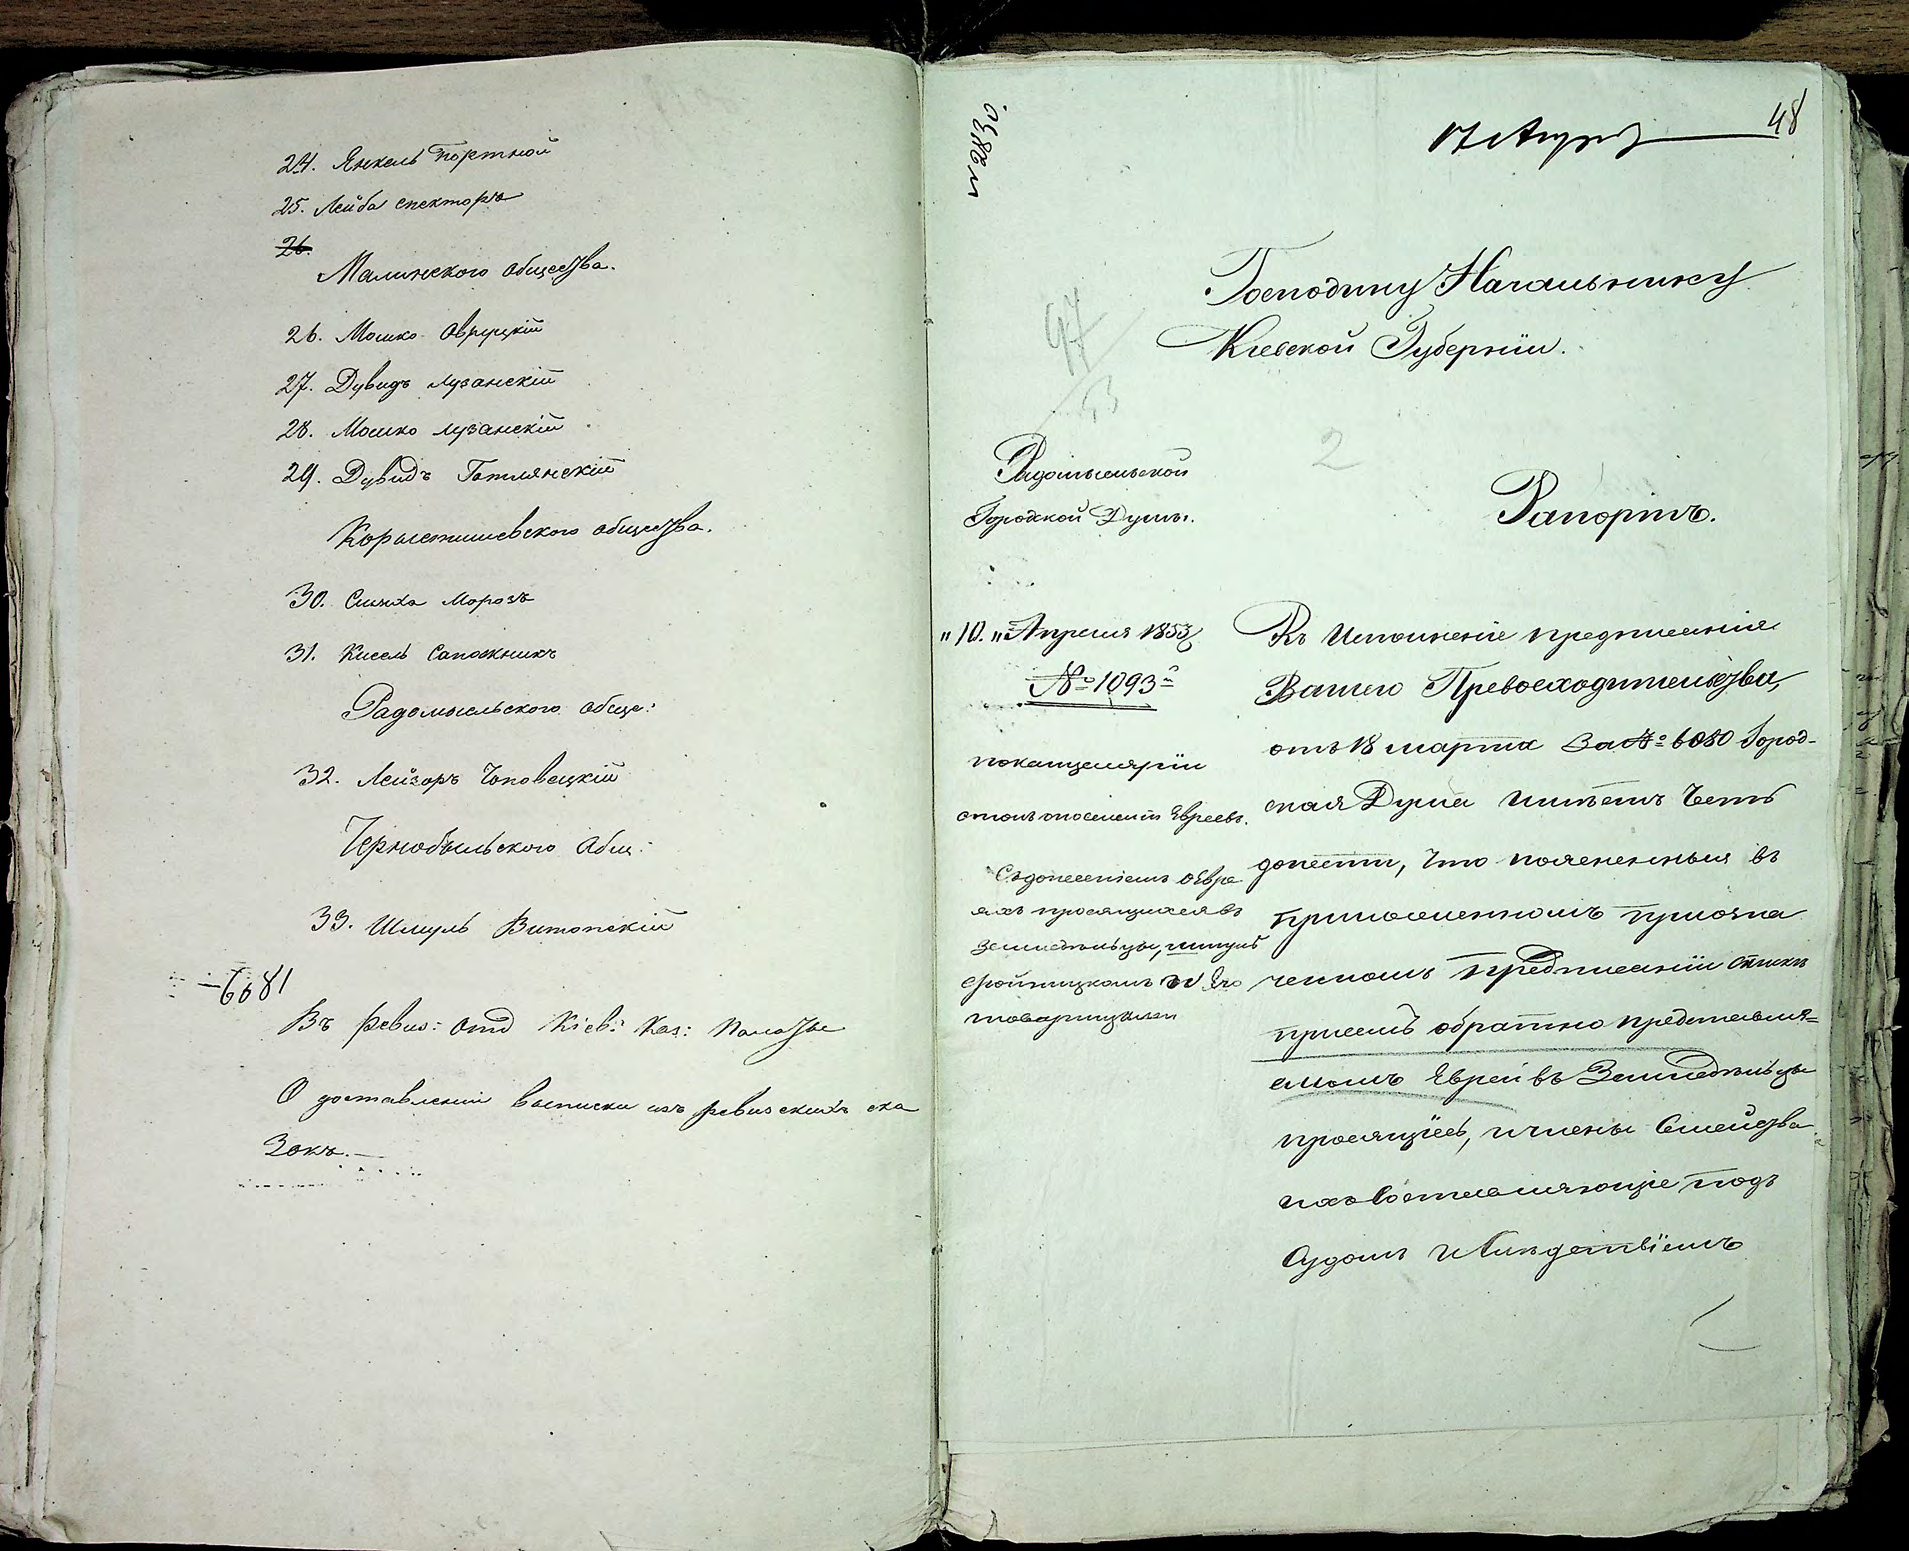 24. Янкель Портной
25. Лейба спекторъ
26.
Малинского общества.
26. Мошко Овруцкій
27. Дувидъ Лузанскій
28. Мошко Лузанскій
29. Дувидъ Готлянскій
Коростишевского общества.
30. Симха Морозъ
31. Кисель Сапожникъ
Радомысльского общес:
32. Лейзоръ Чоповецкій
Чернобыльского Общ:
33. Шмуль Витопскій
6681
Въ Ревиз: Отд Кіев: Каз: Палаты
О доставленіи выписки изъ ревизскихъ ска
зокъ.
48
17 Апр
Господину Начальнику
Кіевской Губерніи.
97
53
2
Радомысльской
Городской Думы.
Рапортъ.
"10." Апреля 1853
№ 1093
По канцеляріи
Съ донесеніемъ о Евре
яхъ просящихся въ
Земледельцы,
товарищами
Къ исполненіе предписанія
Вашего Превосходительства,
отъ 18 марта за № 6080 Город-
ская Дума имѣетъ честь
донести, что поясненныя въ
приложенномъ при озна
ченномъ предписаніи списке
присемъ обратно представля=
емомъ Евреи въ Земледѣльцы
просящіеся, и члены Семейства
ихъ составляющіе подъ
Судомъ и Слѣдствіемъ